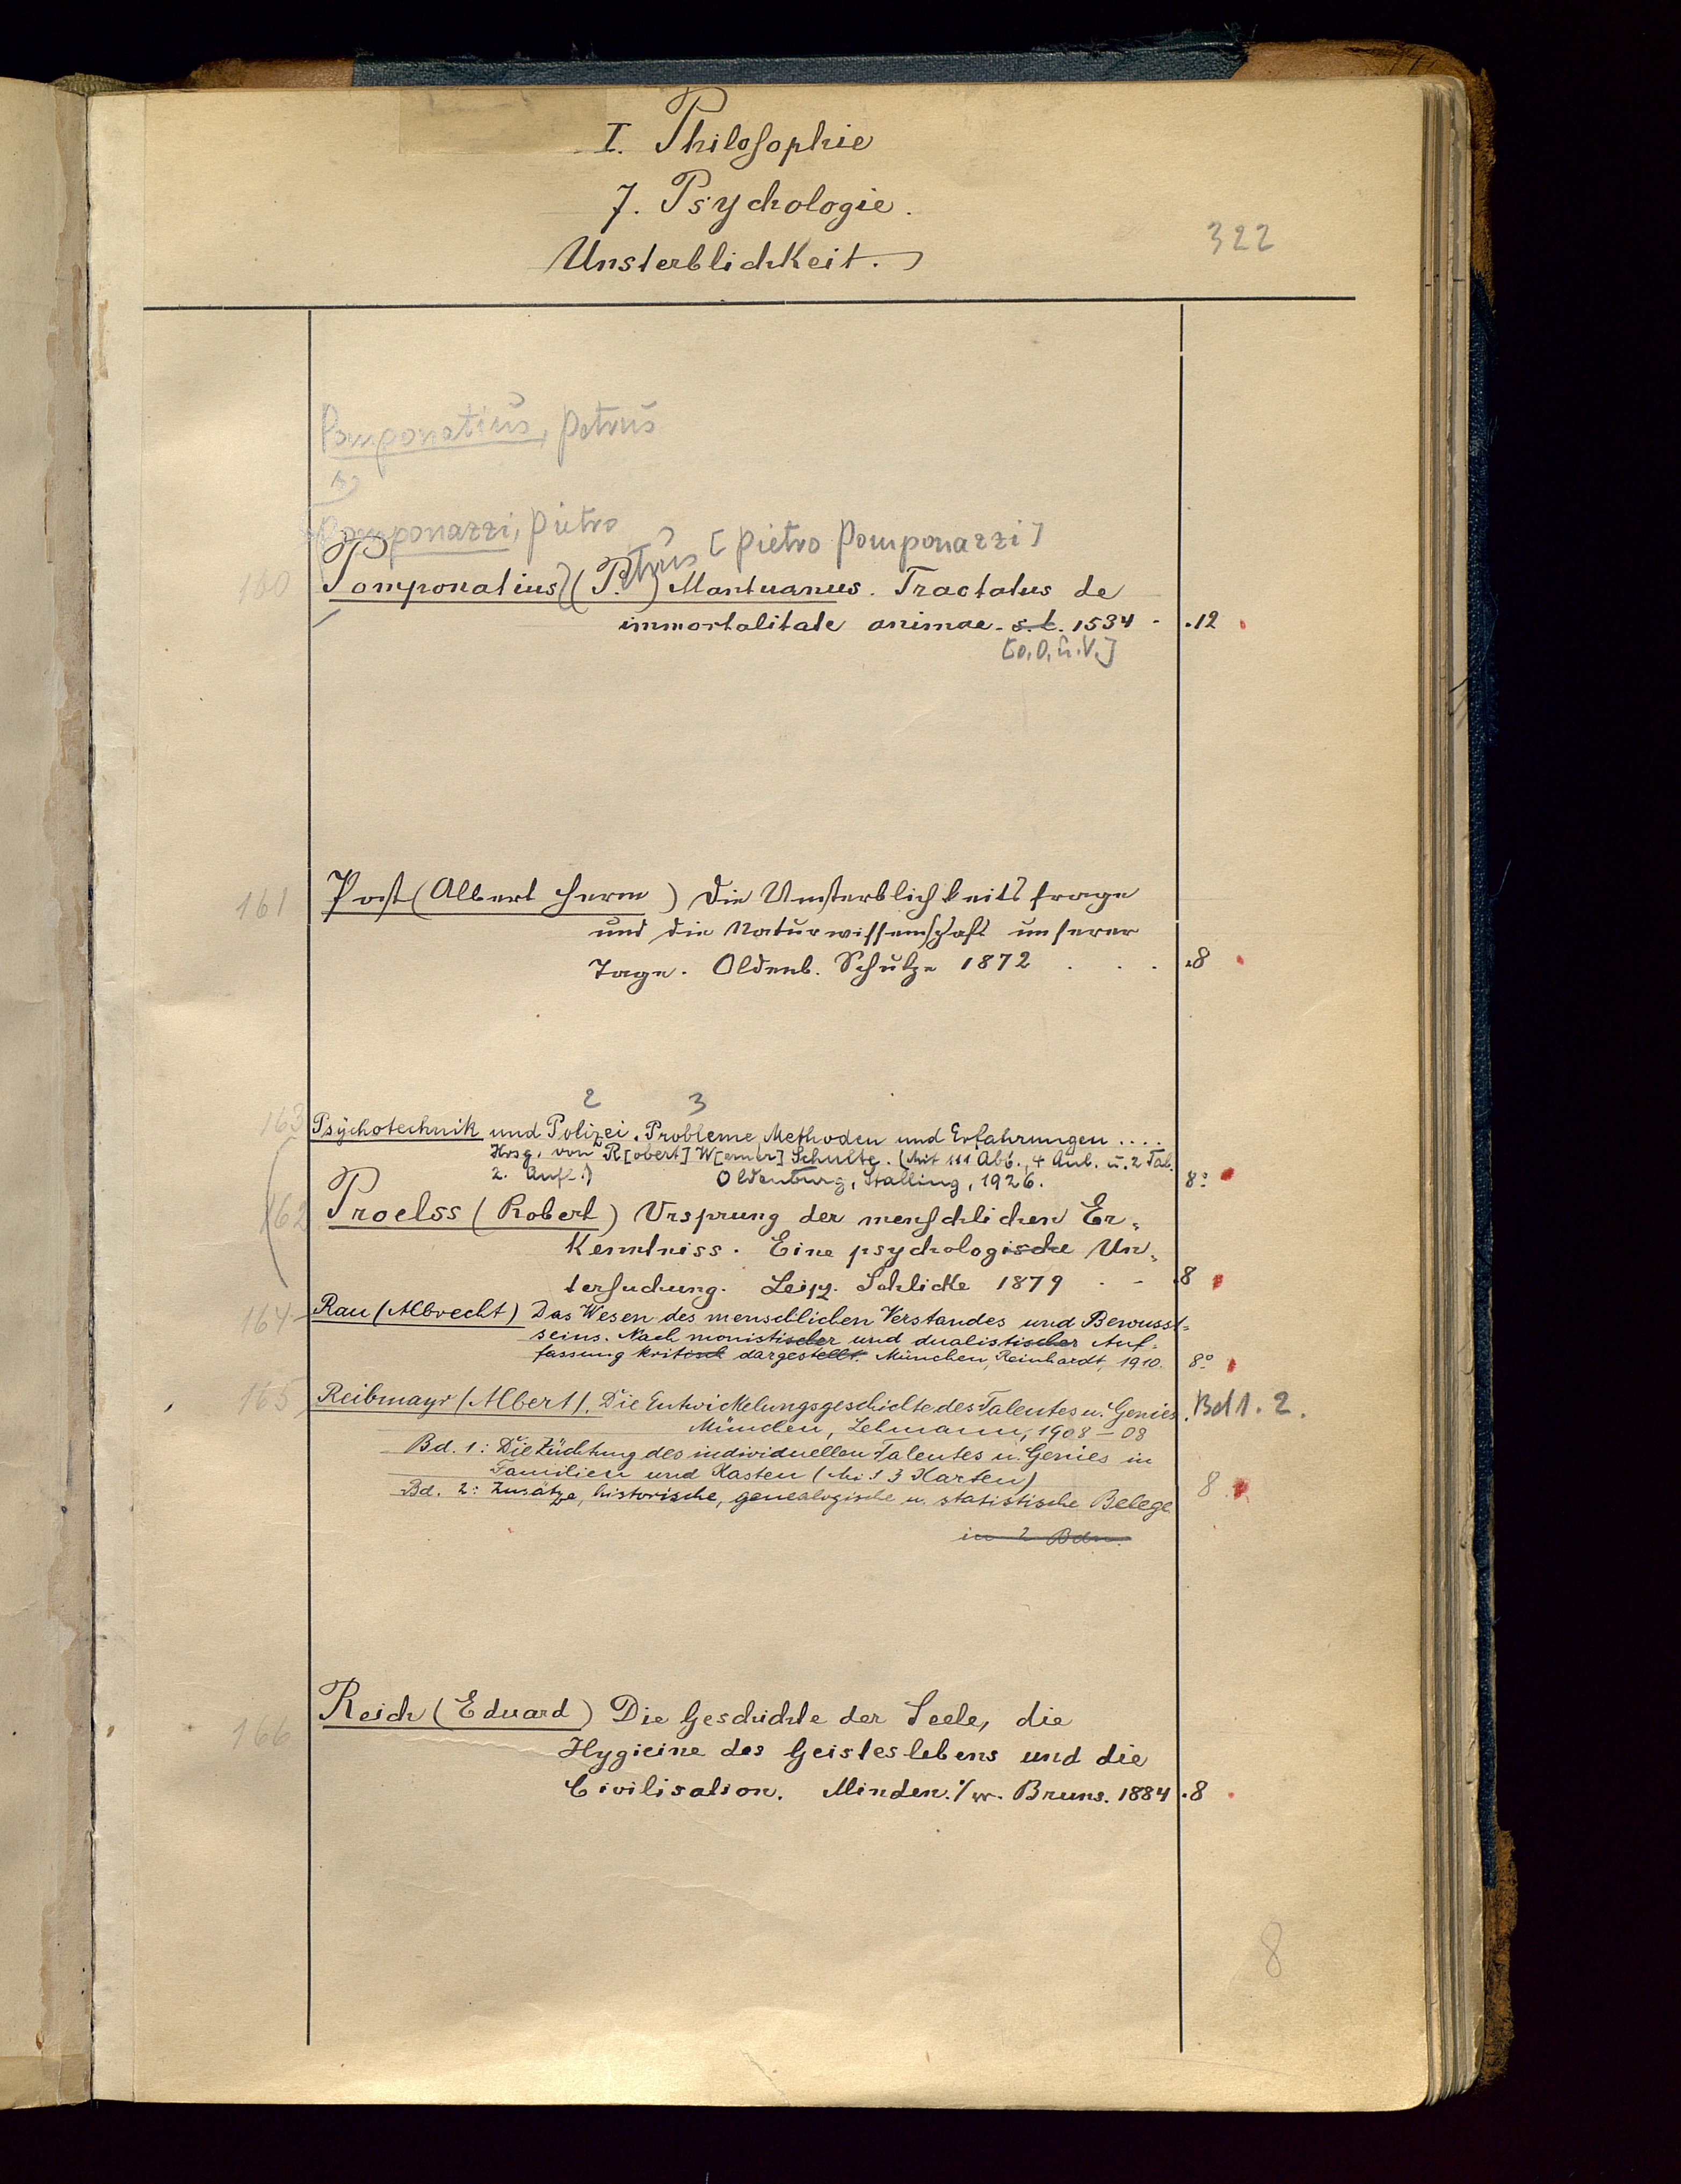 I. Philosophie
7. Psychologie.
Unsterblichkeit.
322
Pomponatius, Petrus
s.
Pomponazzi, Pietro
[Pietro Pomponazzi]
160 Pomponatius (P.etrus) Mantuanus. Tractatus de
immortalitate animae. s. l. 1534 . .12
[o. O. u. V.]
161 Post (Albert Herm) Die Unsterblichkeitsfrage
und die Naturwissenschaft unserer
Tage. Oldenb. Schulze 1872 . . . .8
2 3
163 Psychotechnik und Polizei. Probleme, Methoden und Erfahrungen ....
Hrsg. von R[obert] W[erner] Schulte. (Mit 111 Abb., 4 Anl. u. 2 Tab.
2. Aufl.) Oldenburg, Stalling, 1926. 8°
162 Proelss (Robert) Ursprung der menschlichen Er-
kenntniss. Eine psychologische Un-
tersuchung. Leipz. Schlicke 1879 . - .8
164 Rau (Albrecht) Das Wesen des menschlichen Verstandes und Bewusst-
seins. Nach monistischer und dualistischer Auf-
fassung kritisch dargestellt. München, Reinhardt, 1910. 8°
165 Reibmayr (Albert). Die Entwickelungsgeschichte des Talentes u. Genies. Bd 1. 2.
München, Lehmann, 1908-08
Bd. 1: Die Züchtung des individuellen Talentes u. Genies in
Familien und Kasten (Mit 3 Karten)
Bd. 2: Zusätze, historische, genealogische u. statistische Belege 8
in 2 Bdn.
166 Reich (Eduard) Die Geschichte der Seele, die
Hygieine des Geisteslebens und die
Civilisation. Minden i/w. Bruns. 1884 .8
8